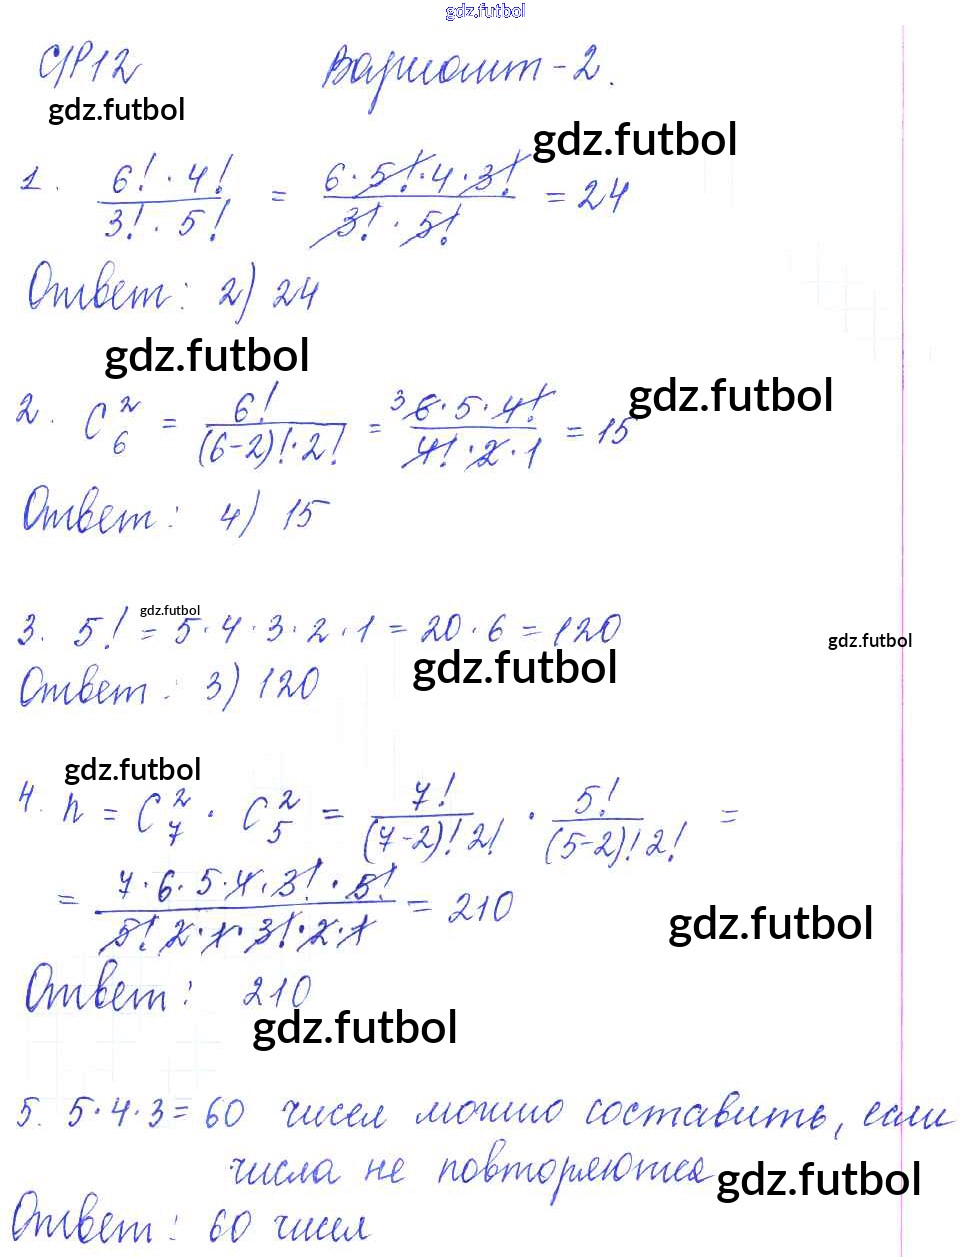 gdz.futbol
С/Р12 Вариант-2.
gdz.futbol
gdz.futbol
1. 6! · 4! / 3! · 5! = 6 · 5! · 4 · 3! / 3! · 5! = 24
Ответ: 2) 24
gdz.futbol
gdz.futbol
2. C₆² = 6! / (6-2)! · 2! = ³6 · 5 · 4! / 4! · 2 · 1 = 15
Ответ: 4) 15
gdz.futbol
3. 5! = 5 · 4 · 3 · 2 · 1 = 20 · 6 = 120
gdz.futbol
gdz.futbol
Ответ: 3) 120
gdz.futbol
4. n = C₇² · C₅² = 7! / (7-2)! 2! · 5! / (5-2)! 2! =
= 7 · 6 · 5 · 4 · 3! · 5! / 5! 2 · 1 · 3! · 2 · 1 = 210
gdz.futbol
Ответ: 210
gdz.futbol
5. 5 · 4 · 3 = 60 чисел можно составить, если
числа не повторяются
gdz.futbol
Ответ: 60 чисел